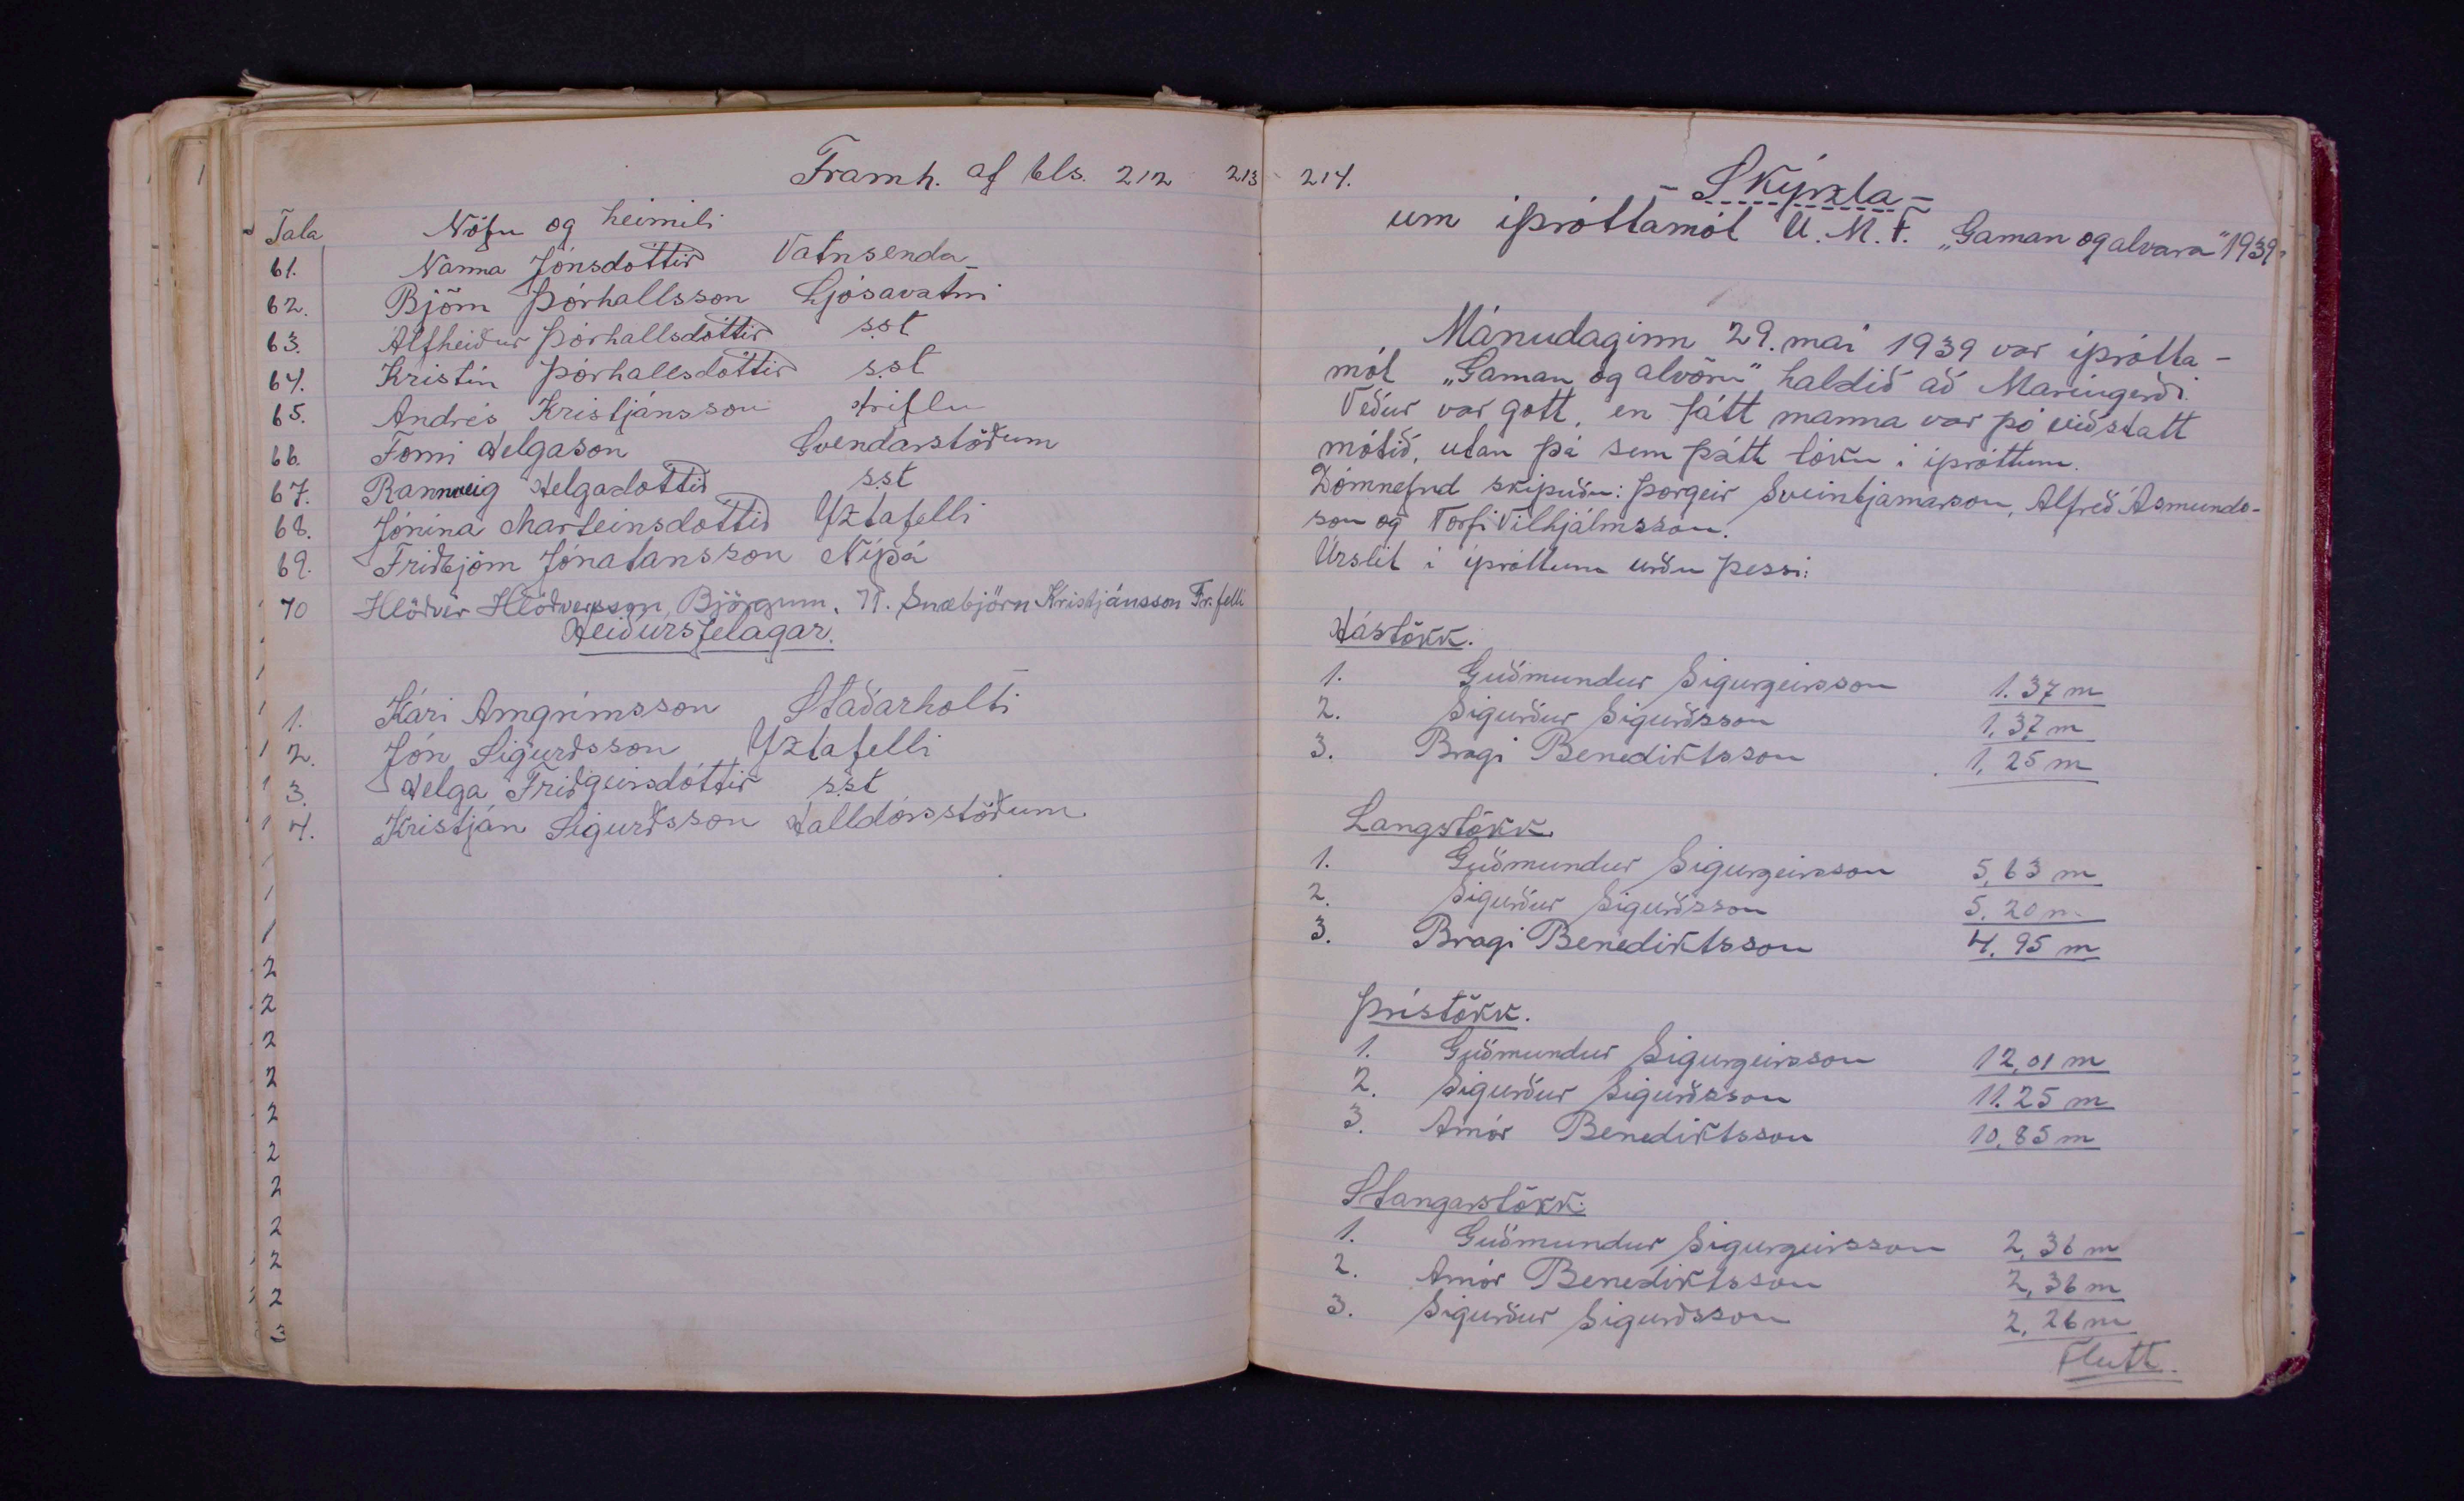 Framh. af bls. 212 213
Tala Nöfn og heimili
61. Nanna Jónsdóttir Vatnsenda
62. Björn Þórhallsson Ljósavatni
63. Álfheiður Þórhallsdóttir s.st
64. Kristín Þórhallsdóttir s.st
65. Andrés Kristjánsson Hriflu
66. Forni Helgason Gvendarstöðum
67. Rannveig Helgadóttir s.st
68. Jónína Marteinsdóttir Yztafelli
69. Friðbjörn Jónatansson Nípá
70 Hlöðver Hlöðversson, Björgum, 71. Snæbjörn Kristjánsson Fr.felli
Heiðursfélagar.
1. Kári Arngrímsson Staðarholti
2. Jón Sigurðsson Yztafelli
3. Helga Friðgeirsdóttir s.st
4. Kristján Sigurðsson Halldórsstöðum
214.
- Skýrzla -
um íþróttamót U.M.F. „Gaman og alvara" 1939.
Mánudaginn 29. maí 1939 var íþrótta-
mót „Gaman og alvöru" haldið að Maríugerði.
Veður var gott, en fátt manna var þó viðstatt
mótið, utan þá sem þátt tóku í íþróttum.
Dómnefnd skipuðu: Þorgeir Sveinbjarnarson, Alfreð Ásmunds-
son og Torfi Vilhjálmsson.
Úrslit í íþróttum urðu þessi:
Hástökk.
1. Guðmundur Sigurgeirsson 1.37 m
2. Sigurður Sigurðsson 1,37 m
3. Bragi Benediktsson 1,25 m
Langstökk.
1. Guðmundur Sigurgeirsson 5,63 m
2. Sigurður Sigurðsson 5.20 m.
3. Bragi Benediktsson 4.95 m
Þrístökk.
1. Guðmundur Sigurgeirsson 12,01 m
2. Sigurður Sigurðsson 11.25 m
3. Arnór Benediktsson 10,85 m
Stangarstökk:
1. Guðmundur Sigurgeirsson 2,36 m
2. Arnór Benediktsson 2,36 m
3. Sigurður Sigurðsson 2,26 m
Flutt.